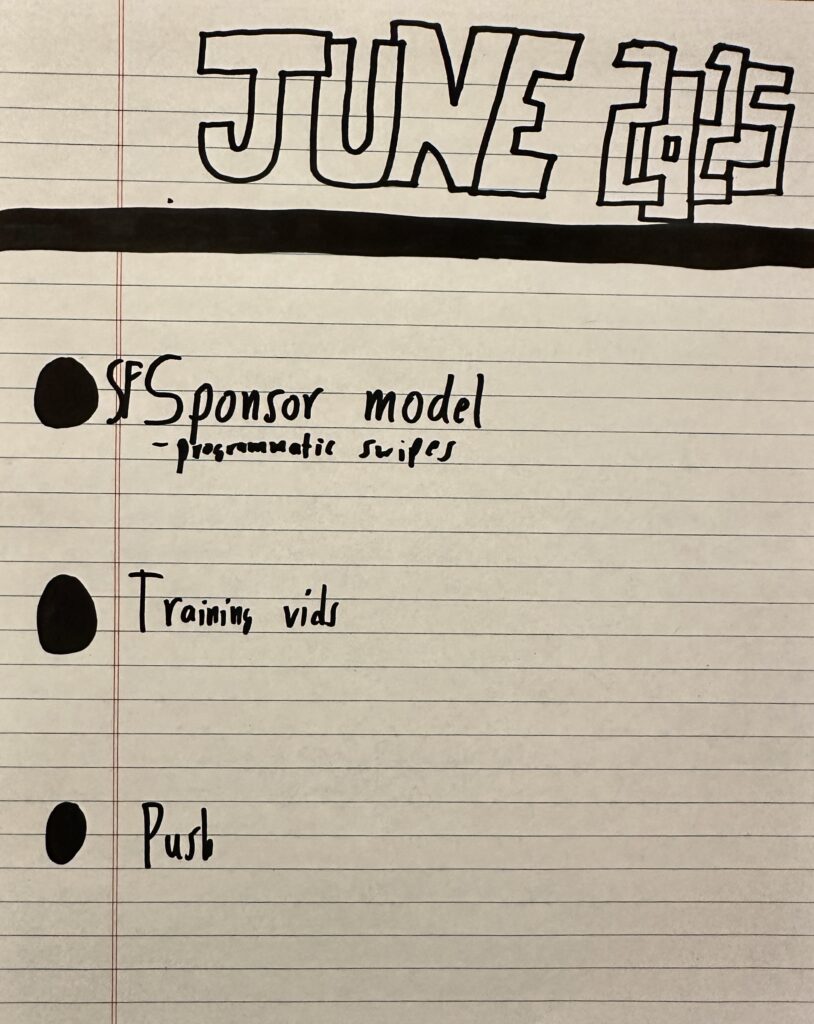 JUNE 2025
SF Sponsor model
- programmatic swipes
Training vids
Push